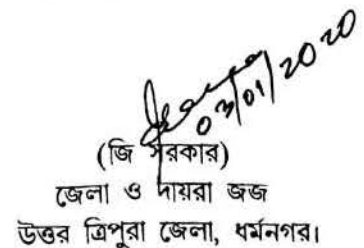 03/01/2020
(জি সরকার)
জেলা ও দায়রা জজ
উত্তর ত্রিপুরা জেলা, ধর্মনগর।